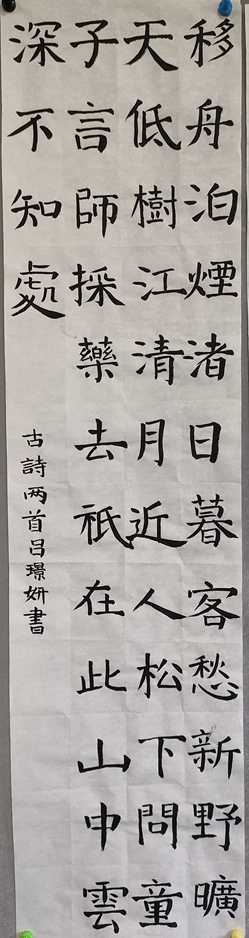 移舟泊煙渚日暮客愁新野曠
天低樹江清月近人松下問童
子言師採藥去祇在此山中雲
深不知處
古詩两首吕璟妍書